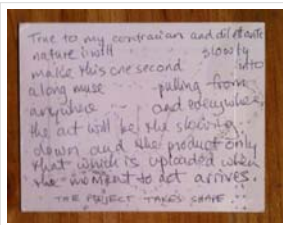 True to my contrarian and diletante
nature i will slowly
make this one second into
along muse pulling from
anywhere and everywhere
the act will be the slowing
down and the product only
that which is uploaded when
the moment to act arrives.
THE PROJECT TAKES SHAPE